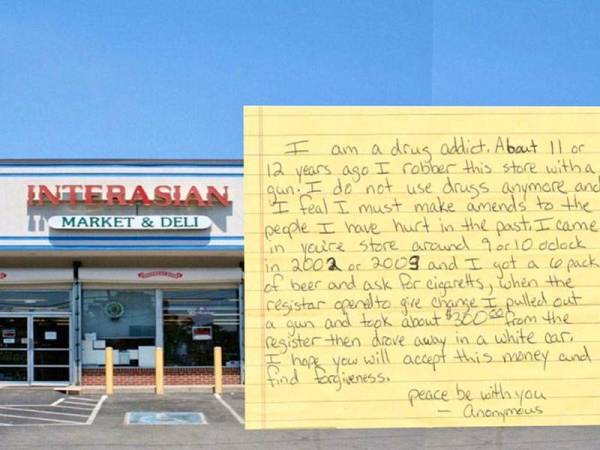 INTERASIAN
MARKET & DELI
I am a drug addict. About 11 or
12 years ago I robber this store with a
gun. I do not use drugs anymore and
I feal I must make amends to the
people I have hurt in the past. I came
in you're store around 9 or 10 oclock
in 2002 or 2003 and I got a 6 pack
of beer and ask for cigaretts, when the
registar opend to give change I pulled out
a gun and took about $300.00 from the
register then drove away in a white car.
I hope you will accept this money and
find forgiveness.
peace be with you
— Anonymous